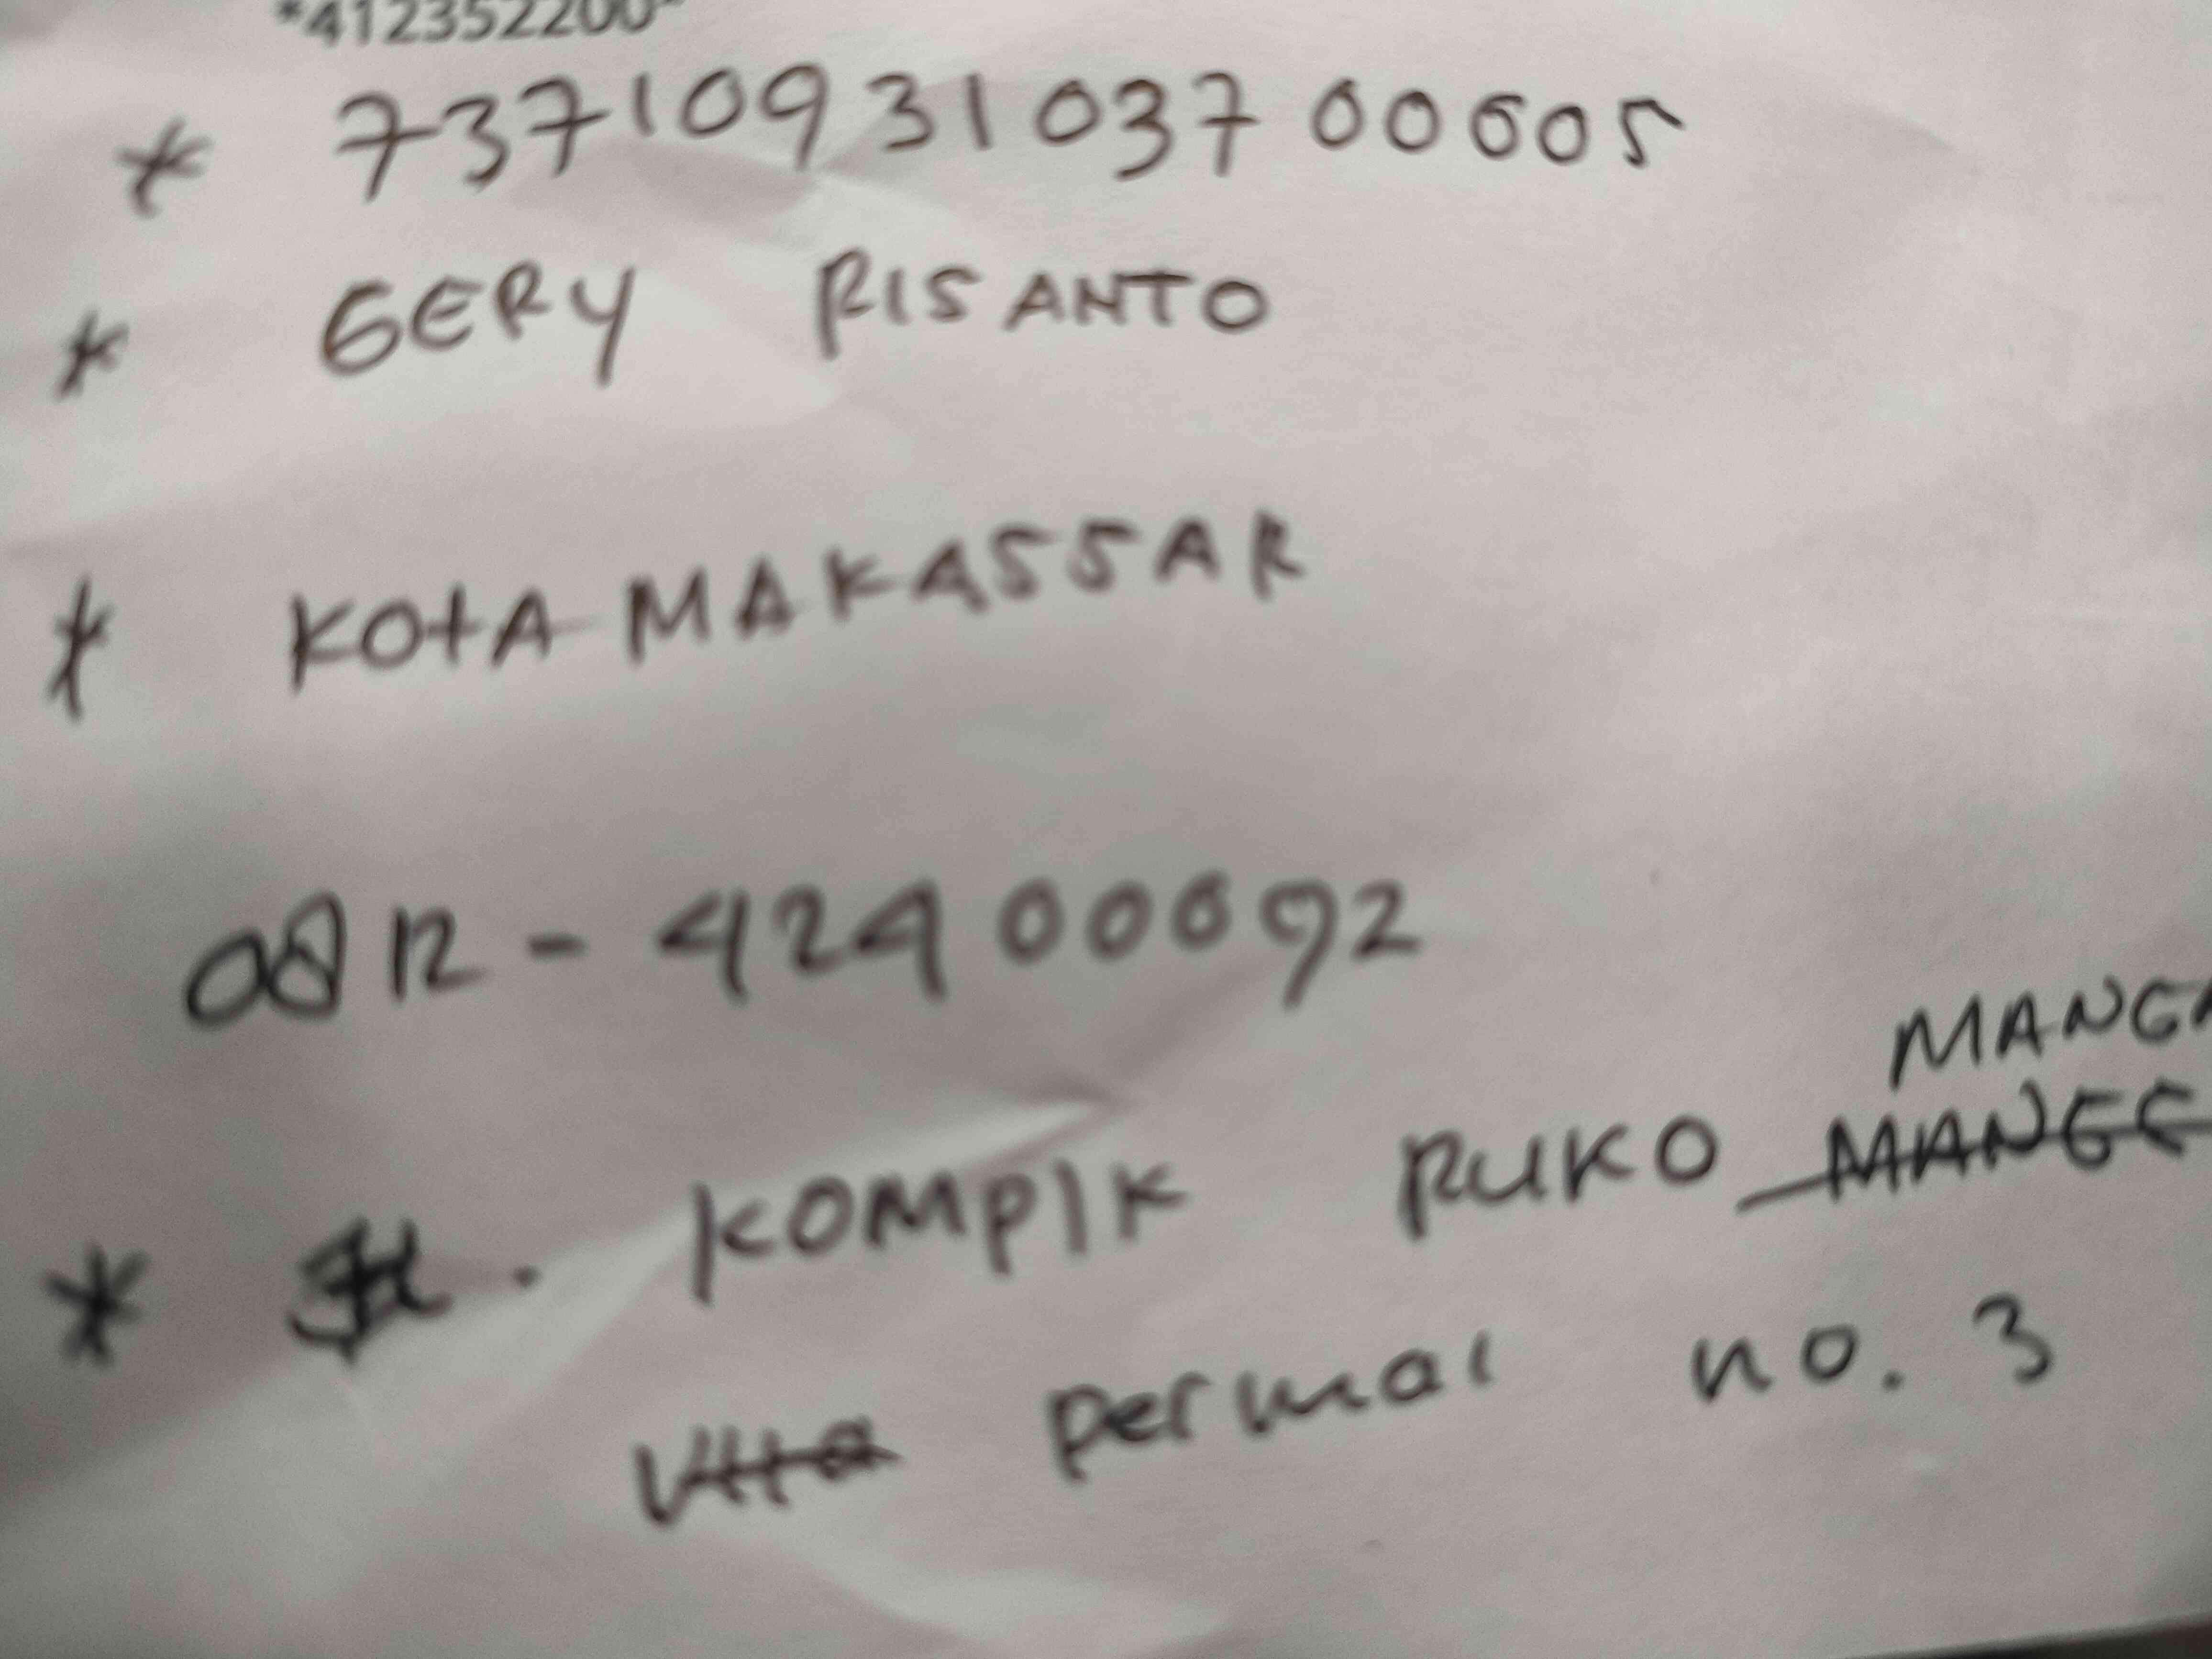 *412352200*
* 7371093103700005
* GERY RISANTO
* KOTA MAKASSAR
0812 - 42400092
MANGA
* Jl. KOMPLK RUKO MANGG
Vita permai no. 3